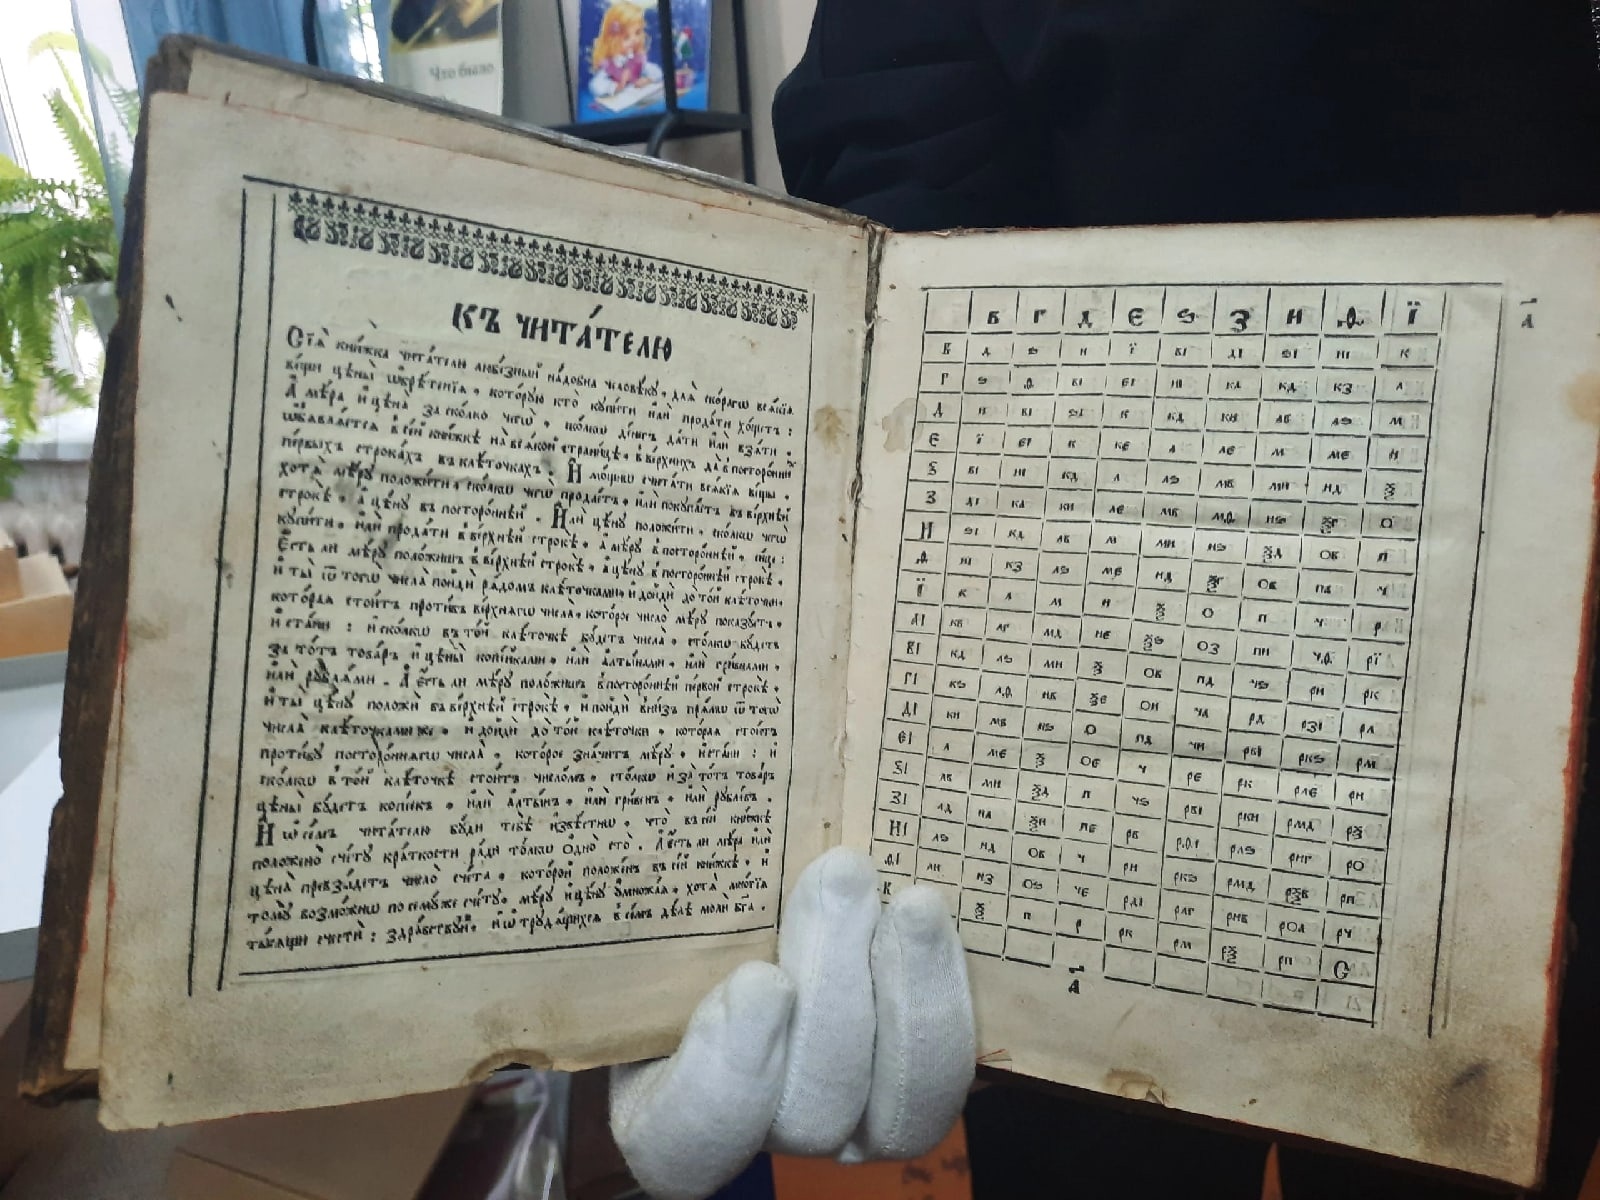 Что было
КЪ ЧИТА́ТЕЛЮ
Сїѧ̀ кни́жка чита́телю любе́зныи на́добна человѣ́ку, длѧ̀ ско́рагѡ всѧ́кїѧ
ве́щи цѣны̀ ѡ҆брѣте́нїѧ, кото́рую кто̀ купи́ти и҆лѝ прода́ти хо́щетъ :
А҆ мѣ́ра и҆ цѣна̀ за ско́лко чегѡ̀, ско́лкѡ де́негъ да́ти и҆лѝ взѧ́ти.
ꙗ҆влѧ́етсѧ в се́й кни́жкѣ на всѧ́кой страни́цѣ, в ве́рхнихъ да в посторо́нних
пе́рвыхъ строка́хъ въ клѣ́точкахъ. И҆ мо́щнѡ счита́ти всѧ́кїѧ ве́щы.
хотѧ̀ мѣ́ру положи́ти, ско́лкѡ чегѡ̀ продае́тъ, и҆лѝ покупа́етъ въ ве́рхней
строкѣ̀, а҆ цѣ́ну въ посторо́нней. И҆лѝ цѣ́ну положи́ти, ско́лкѡ чегѡ̀
купи́ти, и҆лѝ прода́ти в ве́рхней строкѣ̀, а҆ мѣ́ру в посторо́нней, пищѝ :
Е҆́сть ли мѣ́ру поло́жишъ в ве́рхней строкѣ̀, а҆ цѣ́ну в посторо́нней строкѣ̀,
и҆ ты̀ ѿ тогѡ̀ числа̀ поидѝ рѧ́домъ клѣ́точками, и҆ доидѝ до то́й клѣ́точки,
кото́раѧ стои́тъ проти́въ ве́рхнѧгѡ числа̀, кото́рое число̀ мѣ́ру пока́зуетъ,
и҆ ста́ни : и҆ ско́лкѡ въ то́й клѣ́точкѣ бу́детъ числа̀, сто́лкѡ бу́детъ
за то́тъ това́ръ и҆ цѣны̀ копѣ́йками, и҆лѝ а҆лты́нами, и҆лѝ гри́внами,
и҆лѝ рублѧ́ми. А҆ е҆́сть ли мѣ́ру поло́жишъ в посторо́нней пе́рвой строкѣ̀,
и҆ ты̀ цѣ́ну положѝ въ ве́рхней строкѣ̀, и҆ поидѝ вни́зъ прѧ́мѡ ѿ тогѡ̀
числа̀ клѣ́точками же, и҆ доидѝ до то́й клѣ́точки, кото́раѧ стои́тъ
проти́ву посторо́ннѧгѡ числа̀, кото́рое зна́читъ мѣ́ру, и҆ ста́ни : и҆
ско́лкѡ в то́й клѣ́точкѣ стои́тъ число́мъ, сто́лкѡ и҆ за то́тъ това́ръ
цѣны̀ бу́детъ копѣ́екъ, и҆лѝ а҆лты́нъ, и҆лѝ гри́венъ, и҆лѝ рубле́въ.
И҆ ѡ҆ се́мъ чита́телю бу́ди тебѣ̀ и҆звѣ́стнѡ, что̀ въ се́й кни́жкѣ
положено̀ сче́ту кра́ткости ра́ди то́лкѡ одно̀ сто̀. А҆ е҆́сть ли мѣ́ра и҆лѝ
цѣна̀ превзы́детъ число̀ сче́та, кото́рой положе́нъ въ се́й кни́жкѣ, и҆
тому̀ возмо́жнѡ по сему́же сче́ту, мѣ́ру и҆ цѣ́ну ᲂу҆множа́ѧ, хотѧ̀ мно́гїѧ
ты́сѧщи сче́сти : здра́вствуй, и҆ ѡ҆ труда́ющихсѧ в се́мъ дѣ́лѣ молѝ бг҃а.
А҃
В Г Д Є Ѕ З И Ѳ Ї
В д ѕ и ї ві ді ѕі иі к
Г ѕ ѳ ві єі иі ка кд кз л
Д и ві ѕі к кд ки лв лѕ м
Є ї єі к кє л лє м мє н
Ѕ ві иі кд л лѕ мв ми нд ѯ
З ді ка ки лє мв мѳ нѕ ѯг о
И ѕі кд лв м ми нѕ ѯд ов п
Ѳ иі кз лѕ мє нд ѯг ов па ч
Ї к л м н ѯ о п ч р
АІ кв лг мд нє ѯѕ оз пи чѳ рї
ВІ кд лѕ ми ѯ ов пд чѕ ри рк
ГІ кѕ лѳ нв ѯє ои ча рд рзі рл
ДІ ки мв нѕ о пд чи рві ркѕ рм
ЄІ л мє ѯ оє ч рє рк рлє рн
ЅІ лв ми ѯд п чѕ рві рки рмд рѯ
ЗІ лд на ѯи пє рв рѳі рлѕ рнг ро
ИІ лѕ нд ов ч ри ркѕ рмд рѯв рп
ѲІ ли нз оѕ чє рді рлг рнв роа рч
К ѯ п р рк рм рѯ рп С
А҃